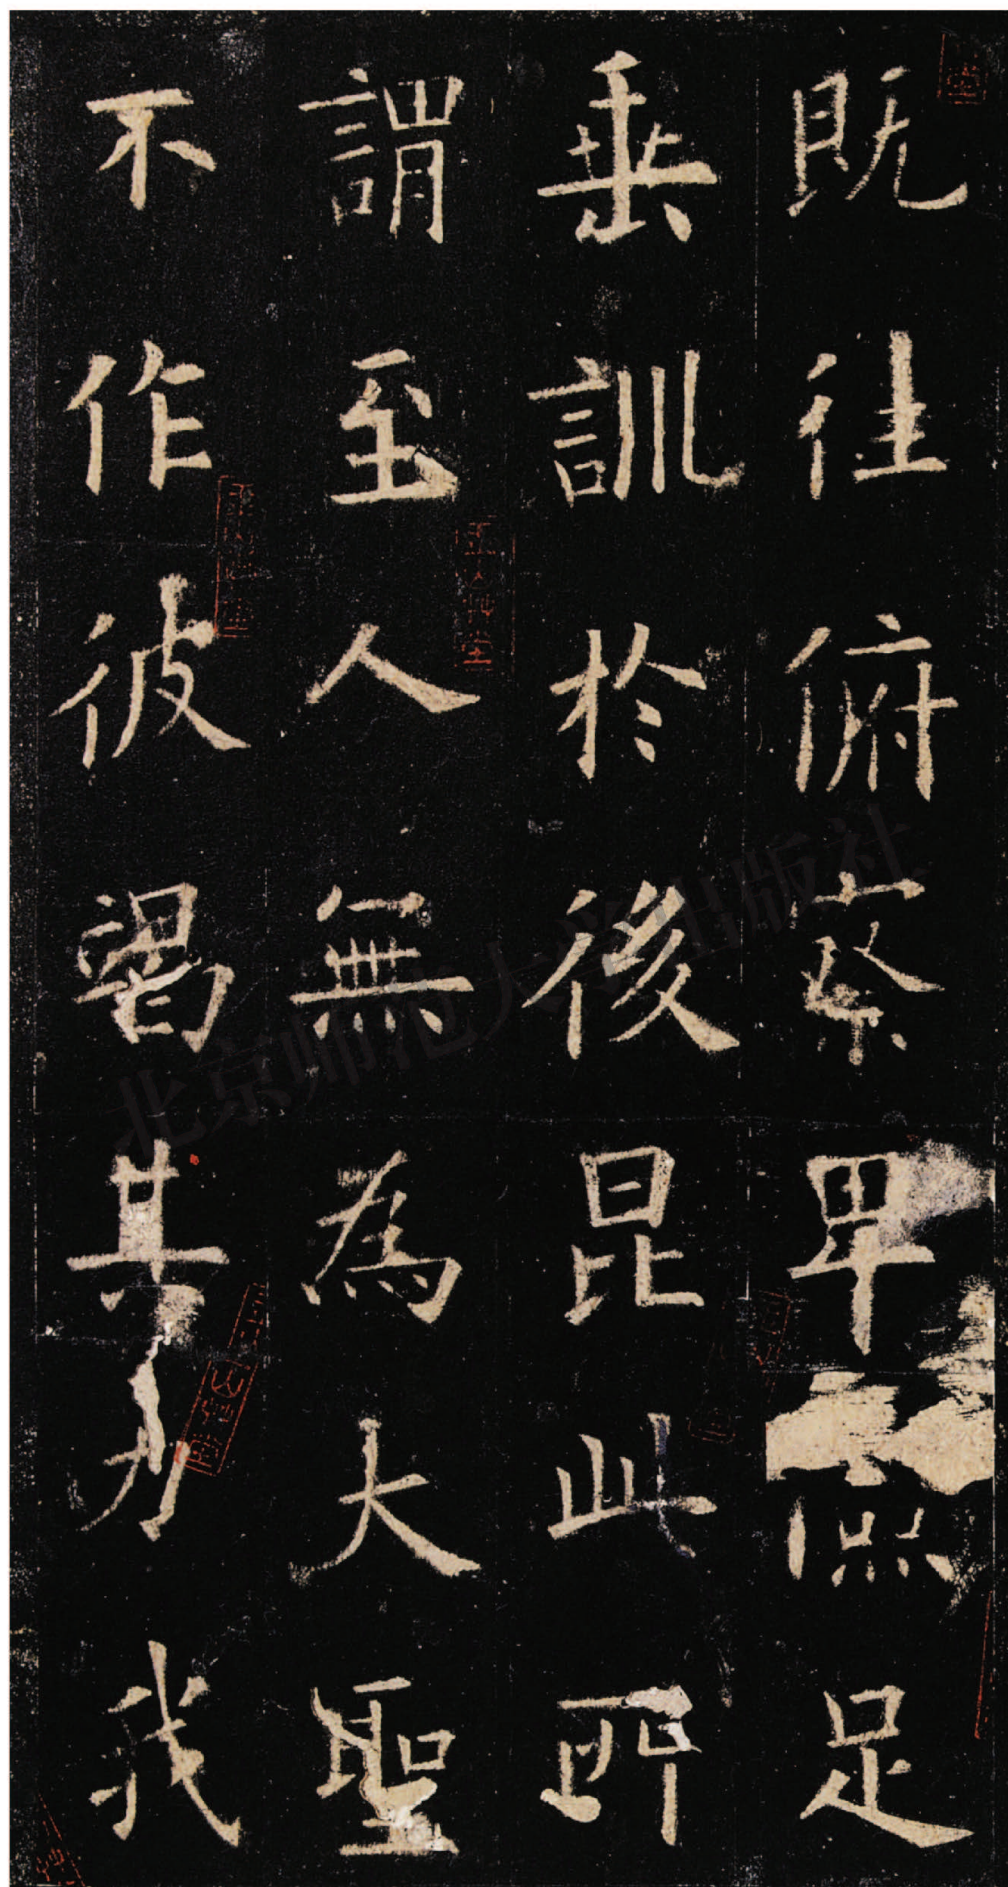 既往俯察卑㷀足
垂訓於後昆此所
謂至人無為大聖
不作彼曷其力我
北京师范大学出版社